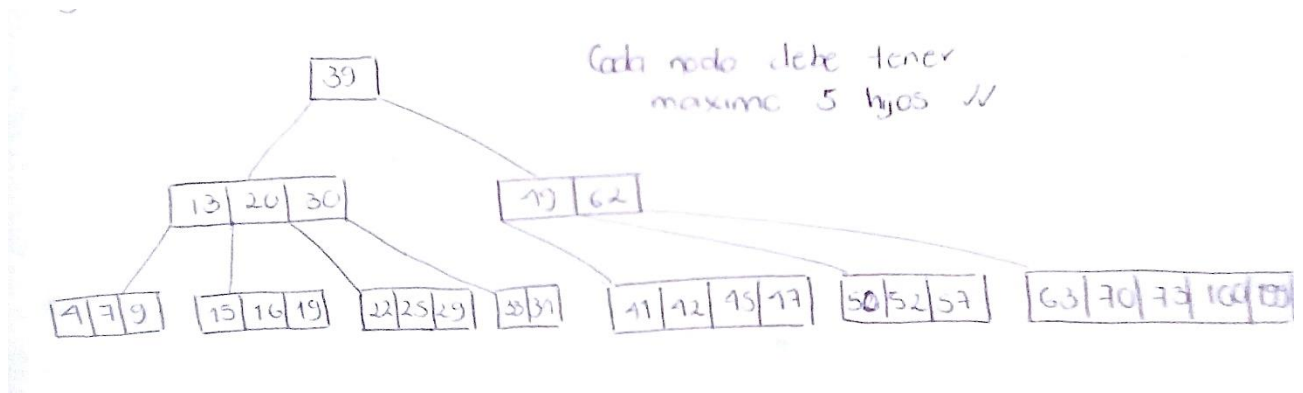 Cada nodo debe tener
maximo 5 hijos
39
13 20 30
62
7 9
15 16 19
22 25 29
41 42 45 47
50 52 57
63 70 73 100